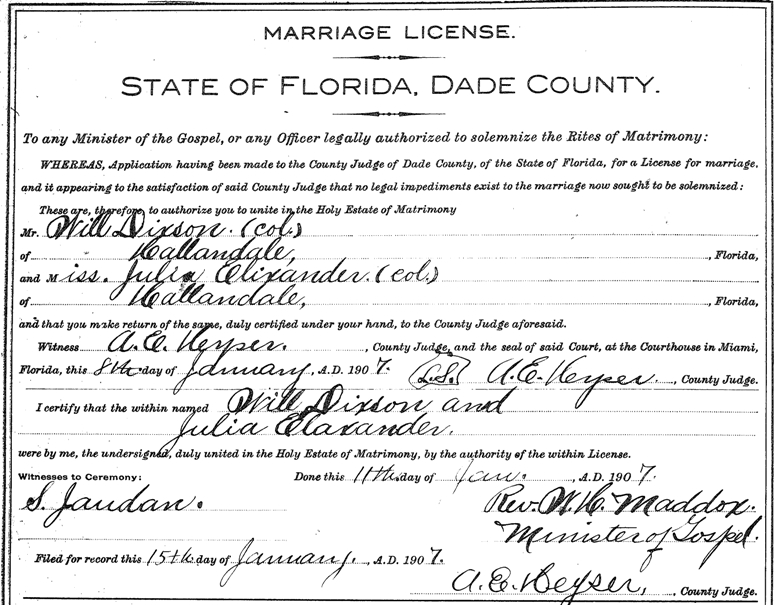 MARRIAGE LICENSE.
STATE OF FLORIDA, DADE COUNTY.
To any Minister of the Gospel, or any Officer legally authorized to solemnize the Rites of Matrimony:
WHEREAS, Application having been made to the County Judge of Dade County, of the State of Florida, for a License for marriage,
and it appearing to the satisfaction of said County Judge that no legal impediments exist to the marriage now sought to be solemnized:
These are, therefore, to authorize you to unite in the Holy Estate of Matrimony
Mr. Will Dixson. (col.)
of Hallandale, , Florida,
and Miss. Julia Elixander. (col.)
of Hallandale, , Florida,
and that you make return of the same, duly certified under your hand, to the County Judge aforesaid.
Witness A. E. Heyser. , County Judge, and the seal of said Court, at the Courthouse in Miami,
Florida, this 8th day of January , A.D. 1907. (L.S.) A. E. Heyser. , County Judge.
I certify that the within named Will Dixson and
Julia Elaxander.
were by me, the undersigned, duly united in the Holy Estate of Matrimony, by the authority of the within License.
Witnesses to Ceremony: Done this 11th. day of Jan. , A.D. 1907.
S. Jaudan. Rev. W. H. Maddox.
Minister of Gospel.
Filed for record this 15th day of January. , A.D. 1907.
A. E. Heyser, , County Judge.